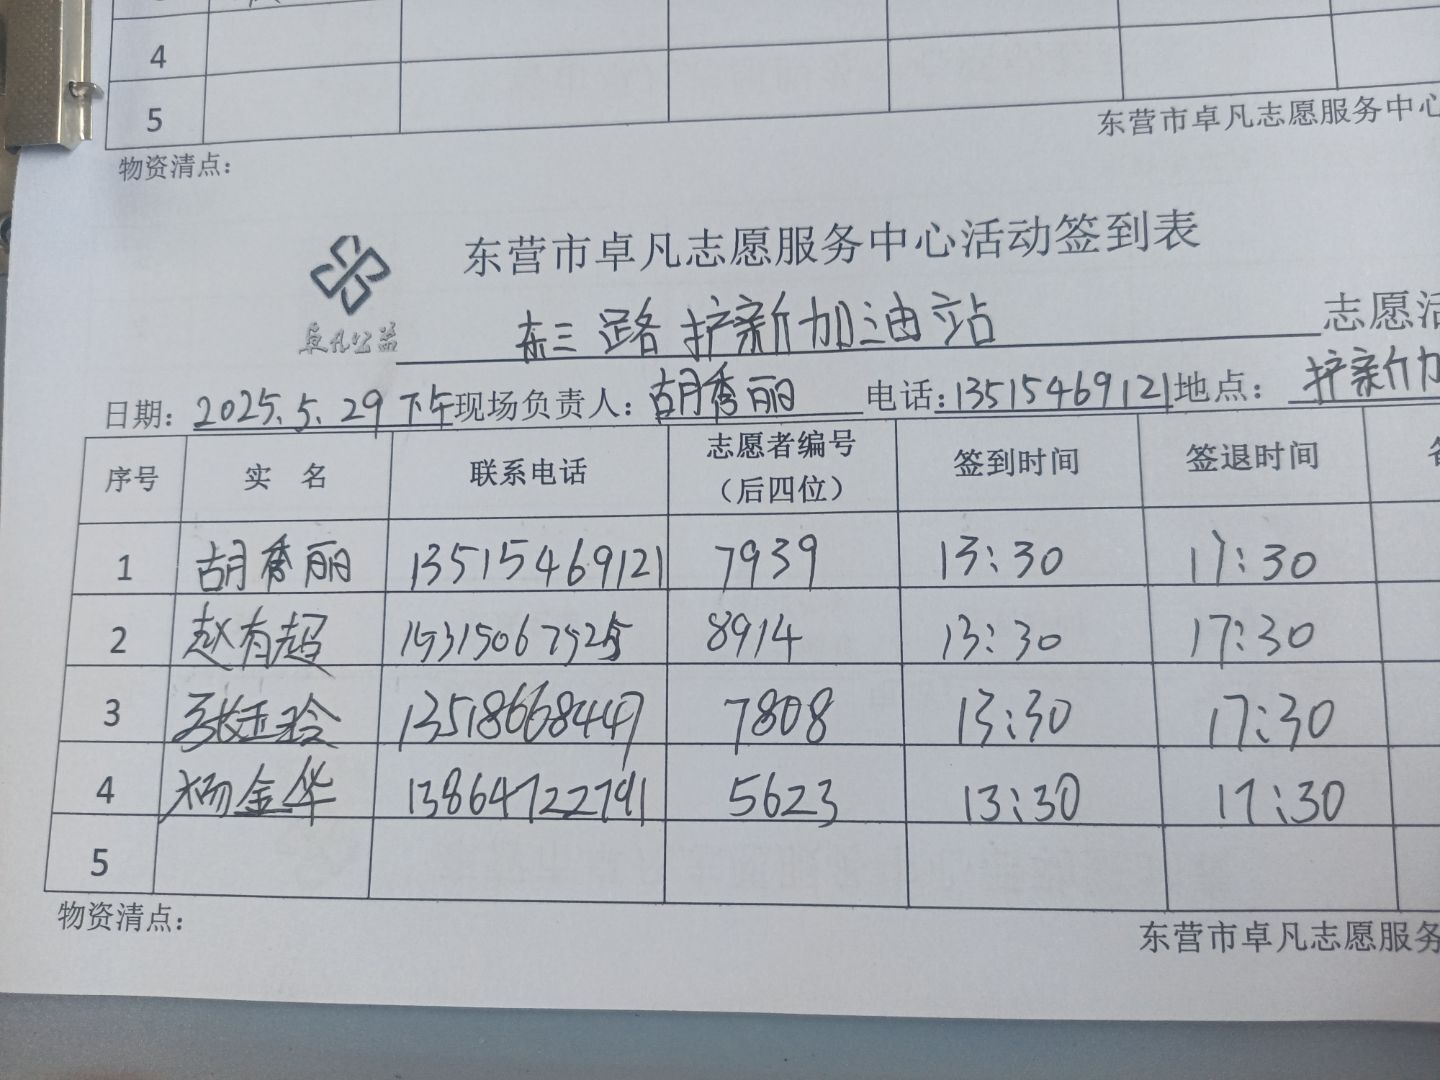 4
5
东营市卓凡志愿服务中心
物资清点：
东营市卓凡志愿服务中心活动签到表
卓凡公益
东三路护新加油站 志愿活
日期：2025.5.29下午 现场负责人：胡秀丽 电话：13515469121 地点：护新加
序号 实 名 联系电话 志愿者编号（后四位） 签到时间 签退时间
1 胡秀丽 13515469121 7939 13:30 17:30
2 赵有超 8914 13:30 17:30
3 13518668447 7808 13:30 17:30
4 杨金华 13864722791 5623 13:30 17:30
5
物资清点：
东营市卓凡志愿服务